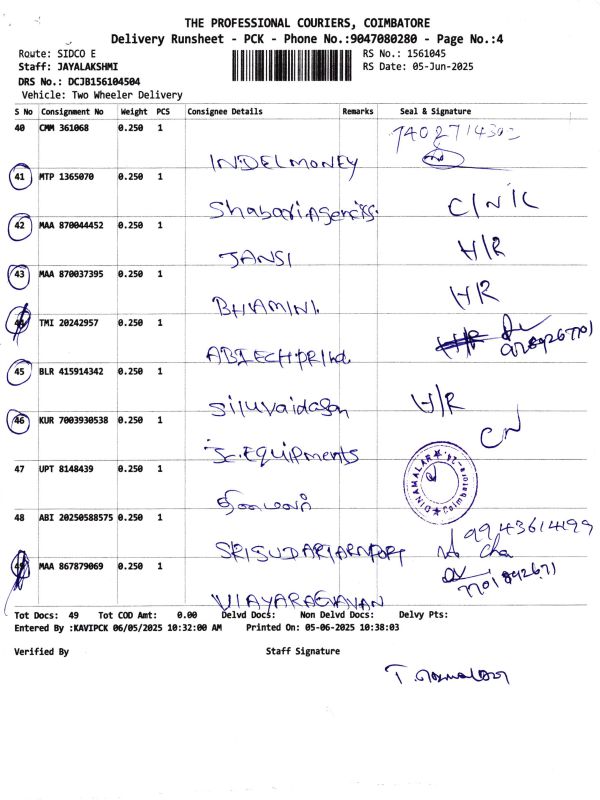 THE PROFESSIONAL COURIERS, COIMBATORE
Delivery Runsheet - PCK - Phone No.:9047080280 - Page No.:4
Route: SIDCO E RS No.: 1561045
Staff: JAYALAKSHMI RS Date: 05-Jun-2025
DRS No.: DCJB156104504
Vehicle: Two Wheeler Delivery
S No Consignment No Weight PCS Consignee Details Remarks Seal & Signature
40 CMM 361068 0.250 1
INDELMONEY
41 MTP 1365070 0.250 1
Shabari Agencies. C/N/C
42 MAA 870044452 0.250 1
JANSI H/R
43 MAA 870037395 0.250 1
BHAMINI. H/R
44 TMI 20242957 0.250 1
45 BLR 415914342 0.250 1
Siluvaidasan H/R
46 KUR 7003930538 0.250 1
Sc.EQuipments CN
47 UPT 8148439 0.250 1
தினமலர்
DINAMALAR ★ Coimbatore-24. ★
48 ABI 20250588575 0.250 1
9943614199
49 MAA 867879069 0.250 1
VIAYARAGAVAN
Tot Docs: 49 Tot COD Amt: 0.00 Delvd Docs: Non Delvd Docs: Delvy Pts:
Entered By :KAVIPCK 06/05/2025 10:32:00 AM Printed On: 05-06-2025 10:38:03
Verified By Staff Signature